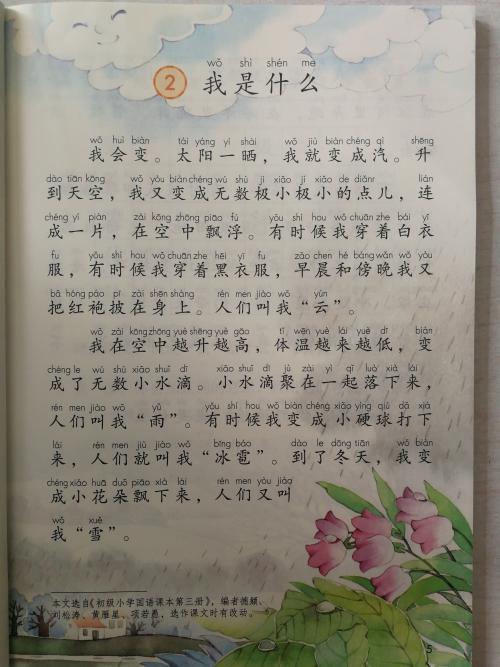 wǒ shì shén me
2 我是什么
wǒ huì biàn tài yáng yí shài wǒ jiù biàn chéng qì shēng
我会变。太阳一晒，我就变成汽。升
dào tiān kōng wǒ yòu biàn chéng wú shù jí xiǎo jí xiǎo de diǎnr lián
到天空，我又变成无数极小极小的点儿，连
chéng yí piàn zài kōng zhōng piāo fú yǒu shí hou wǒ chuān zhe bái yī
成一片，在空中飘浮。有时候我穿着白衣
fu yǒu shí hou wǒ chuān zhe hēi yī fu zǎo chen hé bàng wǎn wǒ yòu
服，有时候我穿着黑衣服，早晨和傍晚我又
bǎ hóng páo pī zài shēn shàng rén men jiào wǒ yún
把红袍披在身上。人们叫我“云”。
wǒ zài kōng zhōng yuè shēng yuè gāo tǐ wēn yuè lái yuè dī biàn
我在空中越升越高，体温越来越低，变
chéng le wú shù xiǎo shuǐ dī xiǎo shuǐ dī jù zài yì qǐ luò xià lái
成了无数小水滴。小水滴聚在一起落下来，
rén men jiào wǒ yǔ yǒu shí hou wǒ biàn chéng xiǎo yìng qiú dǎ xià
人们叫我“雨”。有时候我变成小硬球打下
lái rén men jiù jiào wǒ bīng báo dào le dōng tiān wǒ biàn
来，人们就叫我“冰雹”。到了冬天，我变
chéng xiǎo huā duǒ piāo xià lái rén men yòu jiào
成小花朵飘下来，人们又叫
wǒ xuě
我“雪”。
本文选自《初级小学国语课本第三册》，编者德颖、
刘松涛、黄雁星、项若愚，选作课文时有改动。
5